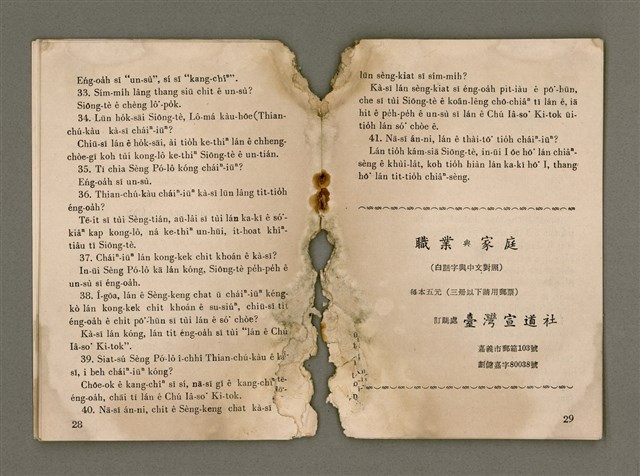 Eńg-oa̍h sī “un-sù”, sī sī “kang-chîⁿ”.
33. Sím-mih lâng thang siū chit ê un-sù?
Siōng-tè ê chèng lô͘-po̍k.
34. Lūn ho̍k-sāi Siōng-tè, Lô-má kàu-hōe (Thian-
chú-kàu kà-sī cháiⁿ-iūⁿ?
Chiū-sī lán ê ho̍k-sāi, ài tio̍h ke-thiⁿ lán ê chheng-
chòe-gī koh tùi kong-lô ke-thiⁿ Siōng-tè ê un-tián.
35. Tī chia Sèng Pó-lô kóng cháiⁿ-iūⁿ?
Eńg-oa̍h sī un-sù.
36. Thian-chú-kàu cháiⁿ-iūⁿ kà-sī lūn lâng tit-tio̍h
éng-oa̍h?
Tē-it sī tùi Sèng-tián, aū-lâi sī tùi lán ka-kī ê só͘-
kiâⁿ kap kong-lô, ná ke-thiⁿ un-hūi, it-hoat khiⁿ-
tiâu tī Siōng-tè.
37. Cháiⁿ-iūⁿ lán kong-kek chit khoán ê kà-sī?
In-ūi Sèng Pó-lô kā lán kóng, Siōng-tè pe̍h-pe̍h ê
un-sù sī éng-oa̍h.
38. Í-gōa, lán ê Sèng-keng chat ū cháiⁿ-iūⁿ kéng-
kò lán kong-kek chit khoán ê su-siúⁿ, chiū-sī tit
éng-oa̍h ê chi̍t pō͘-hūn sī tùi lán ê só͘ chòe?
Kà-sī lán kóng, lán tit éng-oa̍h sī tùi “lán ê Chú
Iâ-so͘ Ki-tok”.
39. Siat-sú Sèng Pó-lô í-chhî Thian-chú-kàu ê kà-
sī, i beh cháiⁿ-iūⁿ kóng?
Chōe-ok ê kang-chîⁿ sī sí, nā-sī gī ê kang-chîⁿ
éng-oa̍h, chāi tī lán ê Chú Iâ-so͘ Ki-tok.
40. Nā-sī án-ni, chit ê Sèng-keng chat kà-sī
28
lūn sêng-kiat sī sím-mih?
Kà-sī lán sêng-kiat sī éng-oa̍h pit-iàu ê pō͘-hūn,
che sī tùi Siōng-tè ê koân-lêng chō-chiâⁿ tī lán ê, iā
hit ê pe̍h-pe̍h ê un-sù sī lán ê Chú Iâ-so͘ Ki-tok ūi-
tio̍h lán só͘ chòe ê.
41. Nā-sī án-ni, lán ê thài-tō͘ tio̍h cháiⁿ-iūⁿ?
Lán tio̍h kám-siā Siōng-tè, in-ūi I ōe hō͘ lán chiâⁿ-
sèng ê khùi-la̍t, koh tio̍h hiàn lán ka-kī hō͘ I, thang
hō͘ lán tit-tio̍h chiâⁿ-sèng.
職業與家庭
(白話字與中文對照)
每本五元(三冊以下請用郵票)
訂購處 臺灣宣道社
嘉義市郵箱103號
劃儲嘉字80038號
29